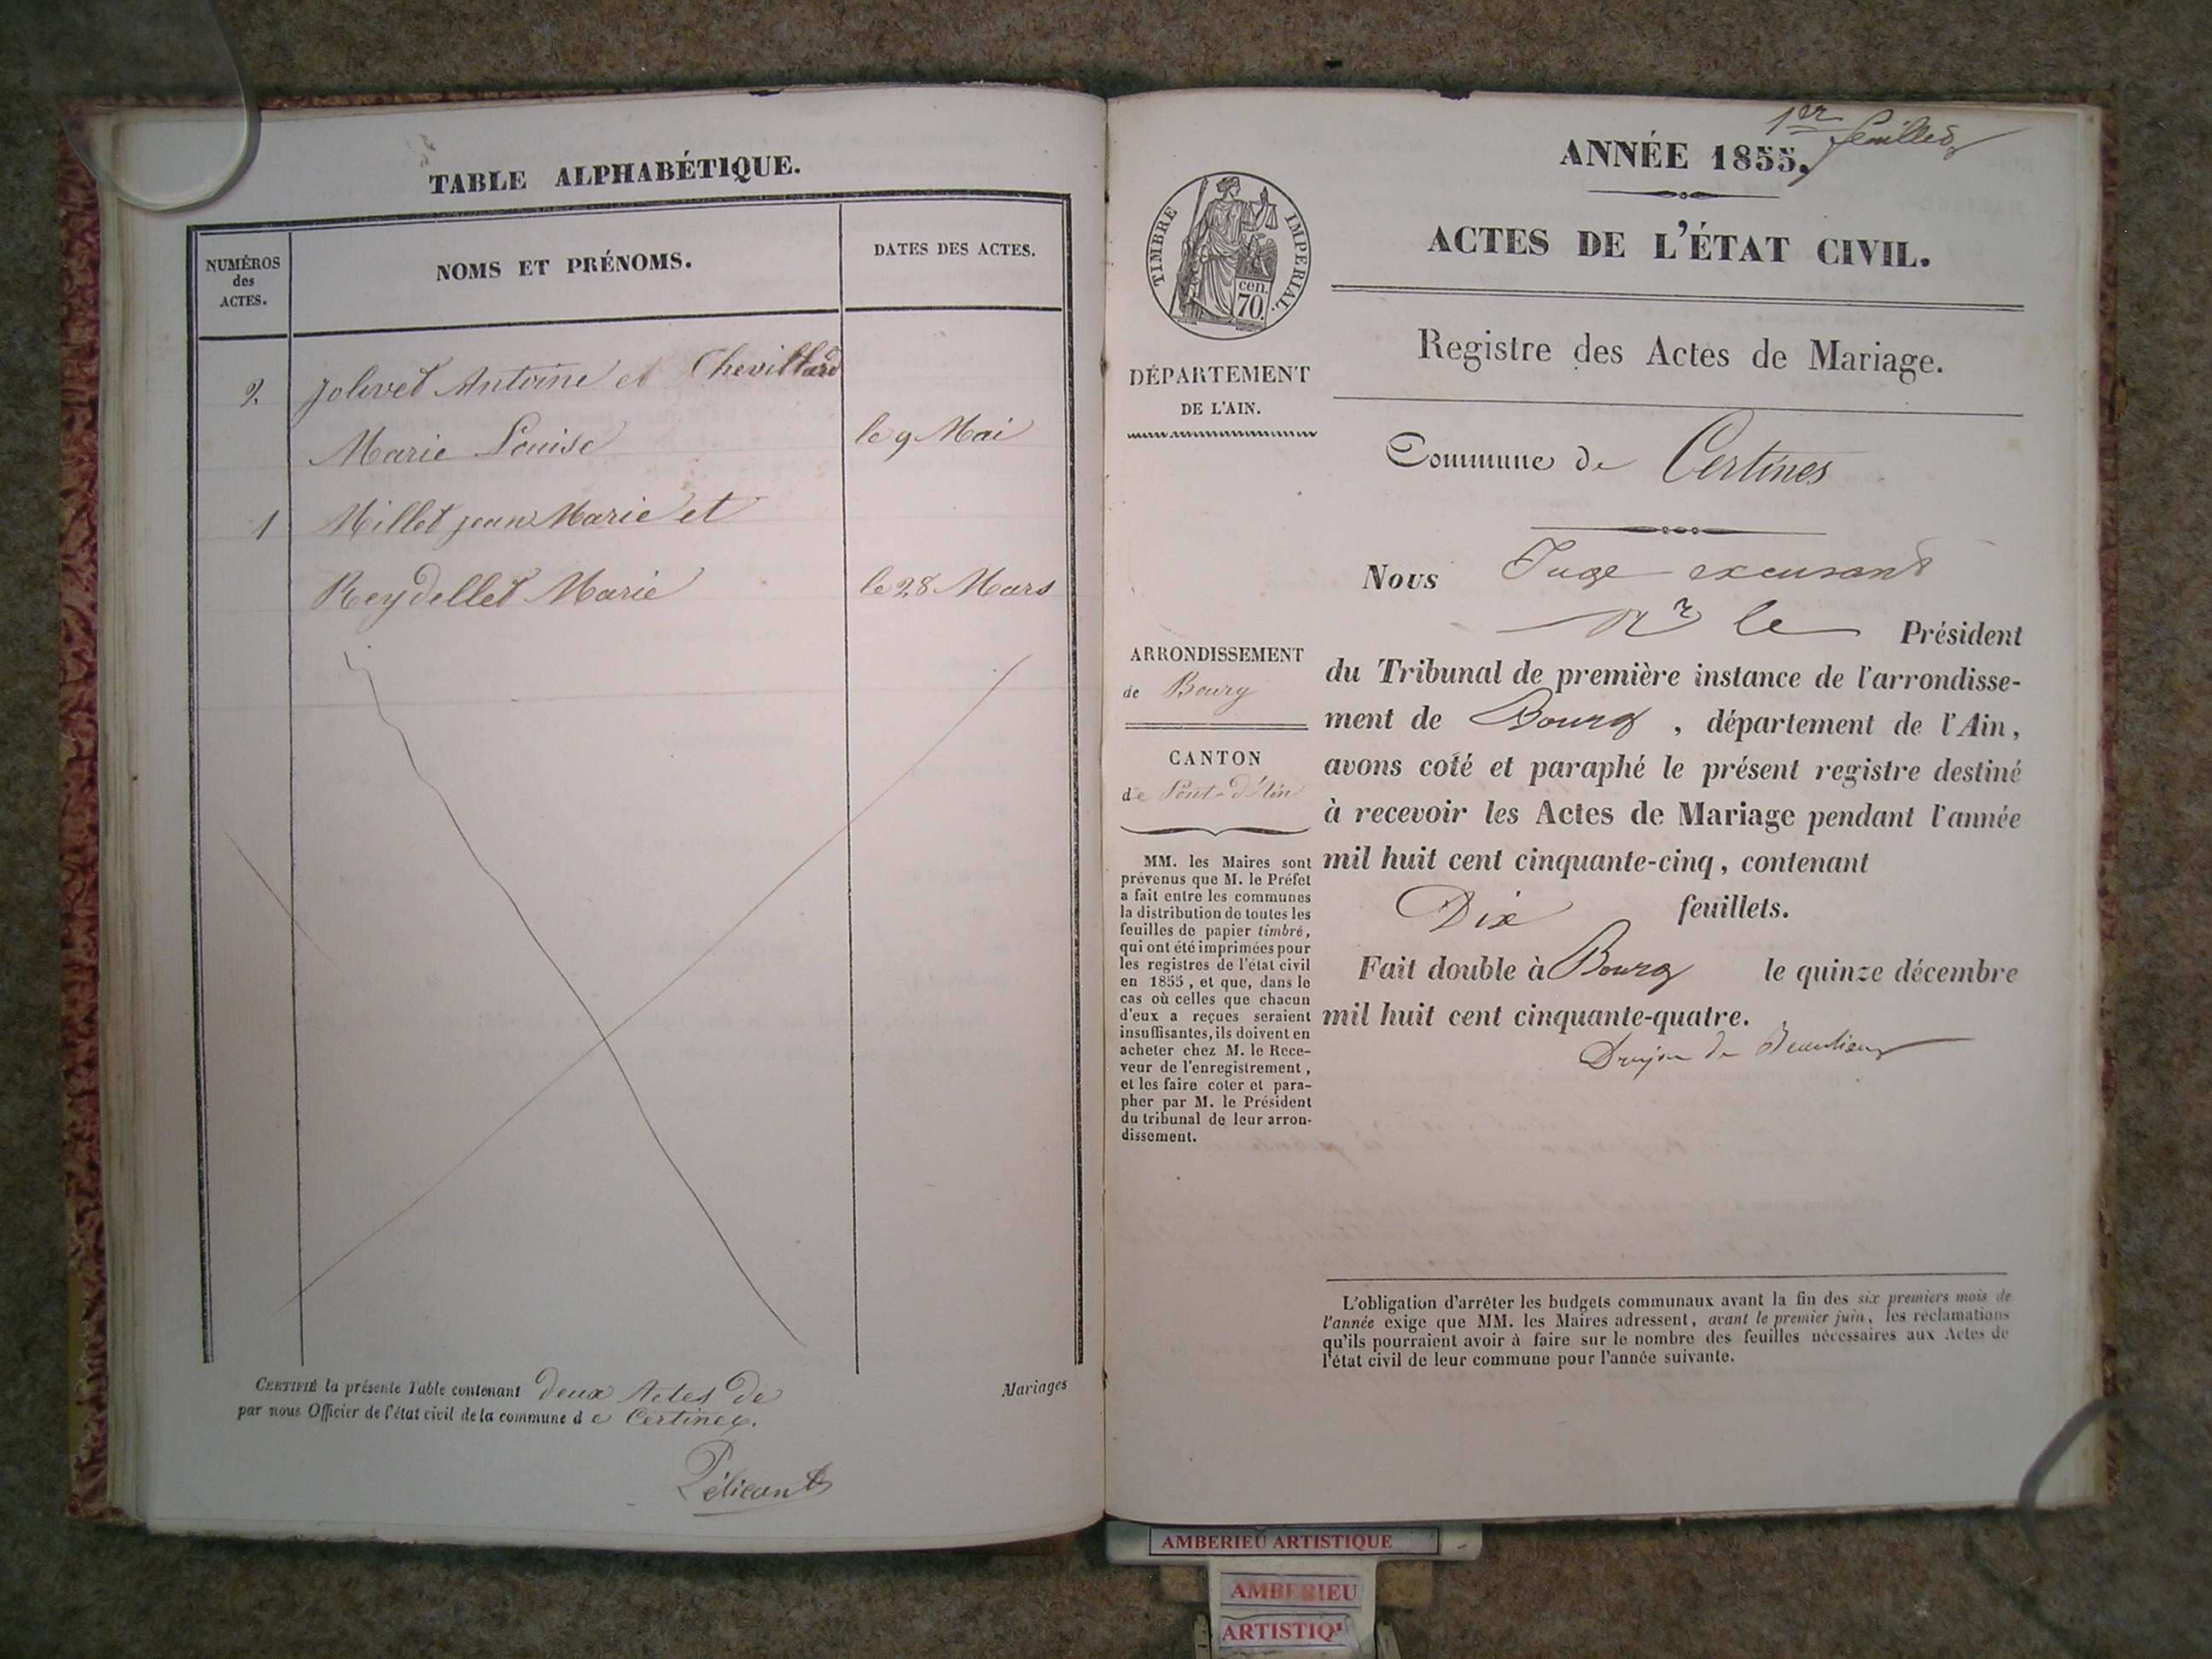 TABLE ALPHABÉTIQUE.
NUMÉROS
des
ACTES.
NOMS ET PRÉNOMS.
DATES DES ACTES.
2 Jolivet Antoine et Chevillard
Marie Louise le 9 Mai
1 Millet jean Marie et
Reydellet Marie le 28 Mars
CERTIFIÉ la présente Table contenant deux Actes de Mariages
par nous Officier de l'état civil de la commune d e Certines.
Pélicant
1er feuillet
ANNÉE 1855.
TIMBRE IMPERIAL.
cen.
70.
ACTES DE L'ÉTAT CIVIL.
Registre des Actes de Mariage.
DÉPARTEMENT
DE L'AIN.
Commune de Certines
ARRONDISSEMENT
de Bourg
CANTON
de Pont-d'Ain
MM. les Maires sont
prévenus que M. le Préfet
a fait entre les communes
la distribution de toutes les
feuilles de papier timbré,
qui ont été imprimées pour
les registres de l'état civil
en 1855, et que, dans le
cas où celles que chacun
d'eux a reçues seraient
insuffisantes, ils doivent en
acheter chez M. le Rece-
veur de l'enregistrement,
et les faire coter et para-
pher par M. le Président
du tribunal de leur arron-
dissement.
Nous Juge excusant
Mr le Président
du Tribunal de première instance de l'arrondisse-
ment de Bourg, département de l'Ain,
avons coté et paraphé le présent registre destiné
à recevoir les Actes de Mariage pendant l'année
mil huit cent cinquante-cinq, contenant
Dix feuillets.
Fait double à Bourg le quinze décembre
mil huit cent cinquante-quatre.
Drujon de Beaulieu
L'obligation d'arrêter les budgets communaux avant la fin des six premiers mois de
l'année exige que MM. les Maires adressent, avant le premier juin, les réclamations
qu'ils pourraient avoir à faire sur le nombre des feuilles nécessaires aux Actes de
l'état civil de leur commune pour l'année suivante.
AMBERIEU ARTISTIQUE
AMBERIEU
ARTISTIQ